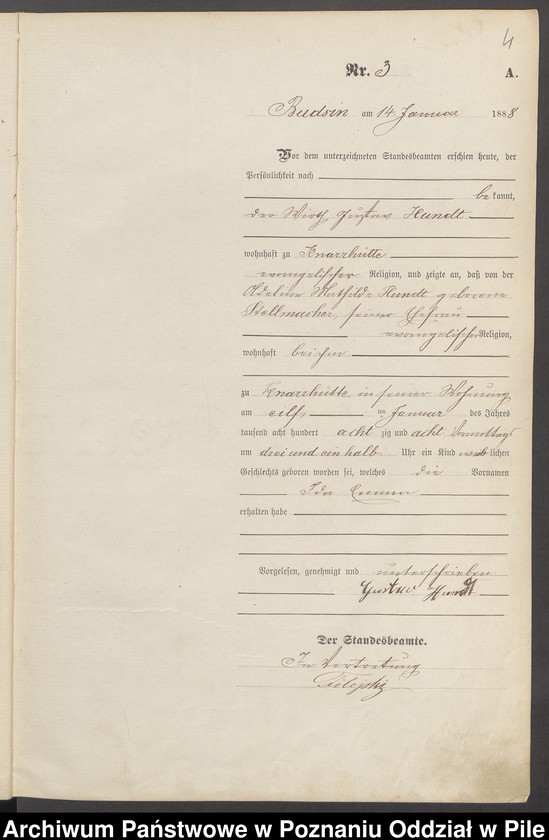 4
Nr. 3
A.
Budsin am 14. Januar 1888
Vor dem unterzeichneten Standesbeamten erschien heute, der
Persönlichkeit nach
bekannt,
der Wirth Gustav Hundt
wohnhaft zu Knarrhütte
evangelischer Religion, und zeigte an, daß von der
Adeline Mathilde Hundt geborene
Stellmacher, seiner Ehefrau
evangelischer Religion,
wohnhaft bei ihm
zu Knarrhütte in seiner Wohnung
am elf ten Januar des Jahres
tausend acht hundert acht zig und acht Vormittags
um drei und ein halb Uhr ein Kind weiblichen
Geschlechts geboren worden sei, welches die Vornamen
Ida Emma
erhalten habe
Vorgelesen, genehmigt und unterschrieben
Gustav Hundt
Der Standesbeamte.
In Vertretung
Archiwum Państwowe w Poznaniu Oddział w Pile